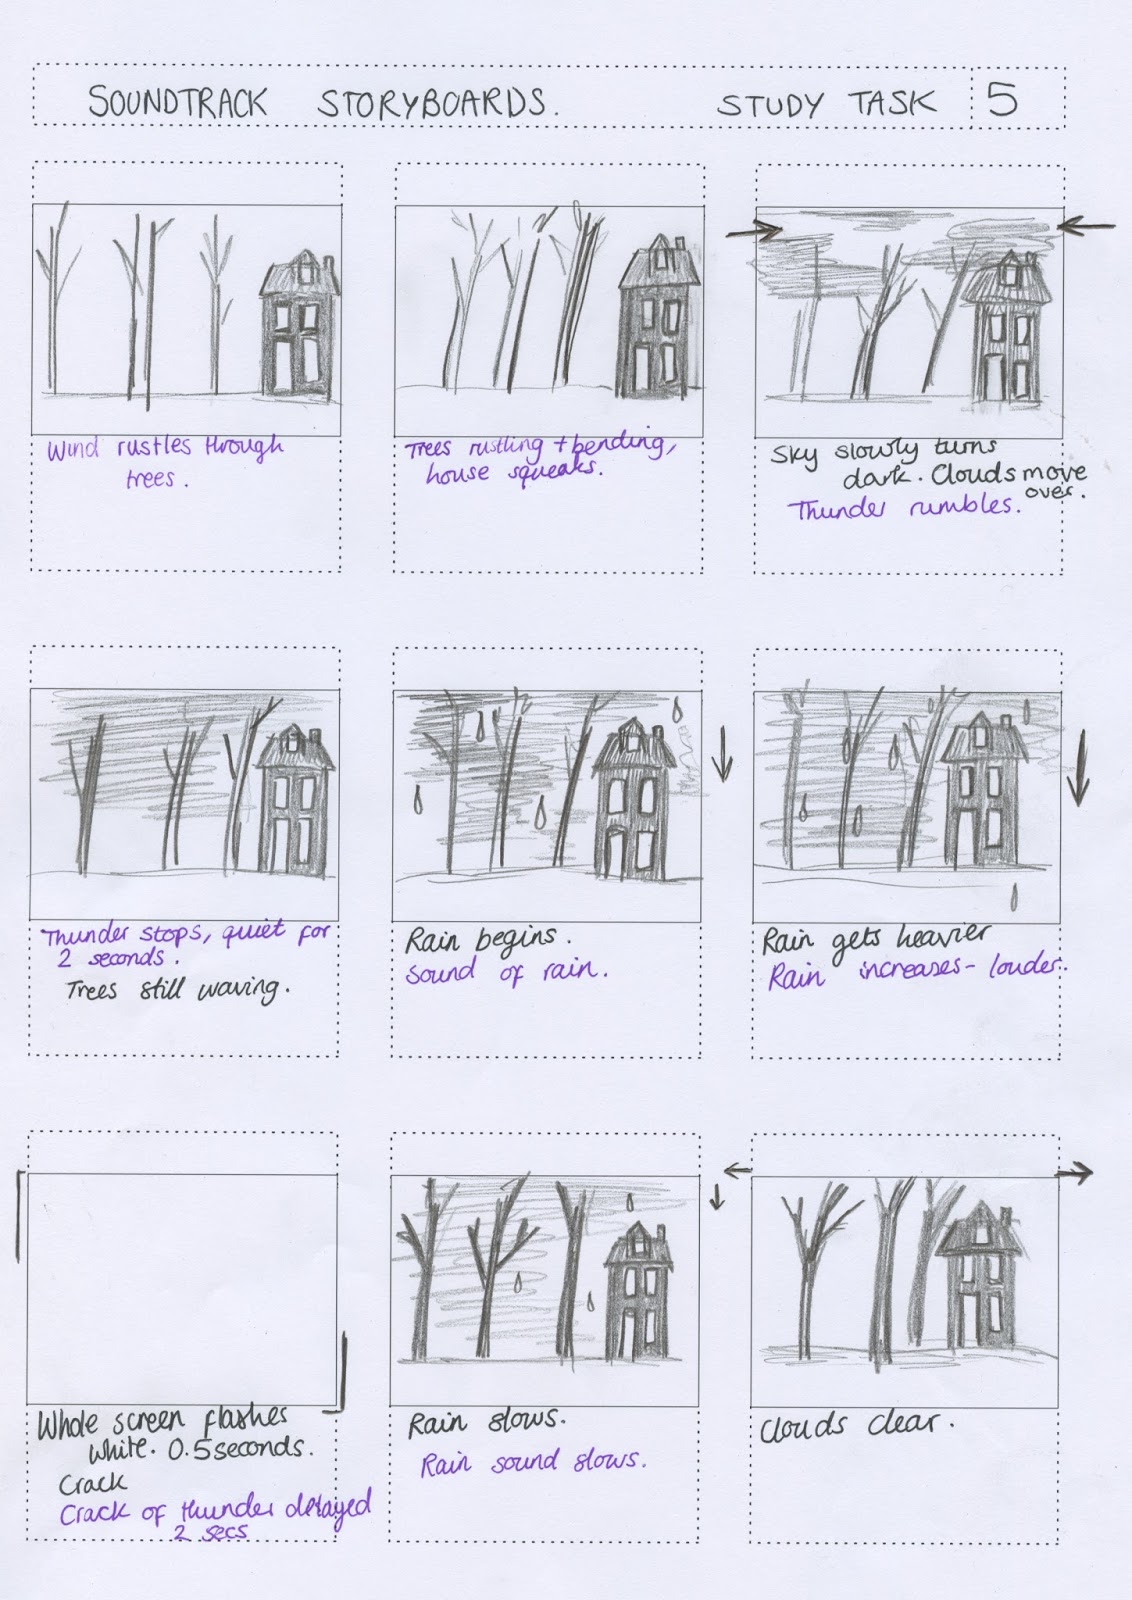 SOUNDTRACK STORYBOARDS. STUDY TASK 5
Wind rustles through
trees.
Trees rustling + bending,
house squeaks.
Sky slowly turns
dark. Clouds move
over.
Thunder rumbles.
Thunder stops, quiet for
2 seconds.
Trees still waving.
Rain begins.
Sound of rain.
Rain gets heavier
Rain increases - louder.
Whole screen flashes
white. 0.5 seconds.
Crack
Crack of thunder delayed
2 secs
Rain slows.
Rain sound slows.
Clouds clear.